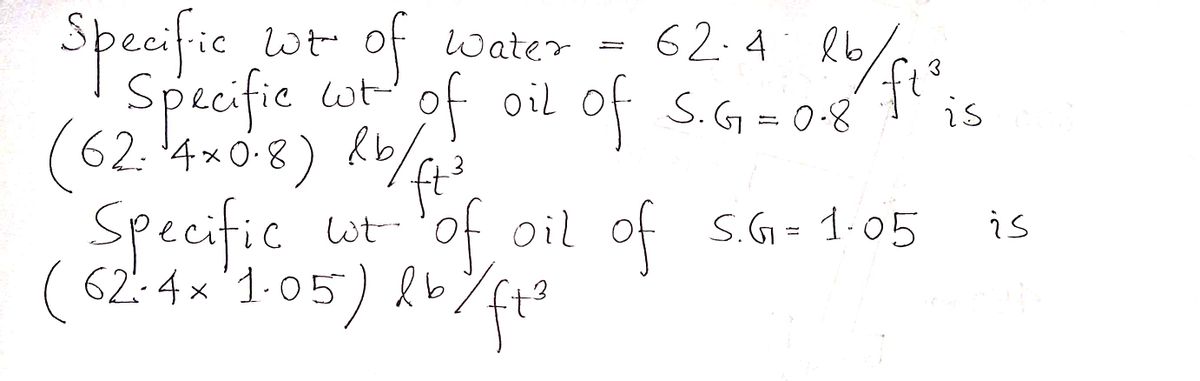 Specific wt of water = 62.4 lb/ft³
Specific wt of oil of S.G = 0.8 is
(62.4×0.8) lb/ft³
Specific wt of oil of S.G = 1.05 is
(62.4×1.05) lb/ft³